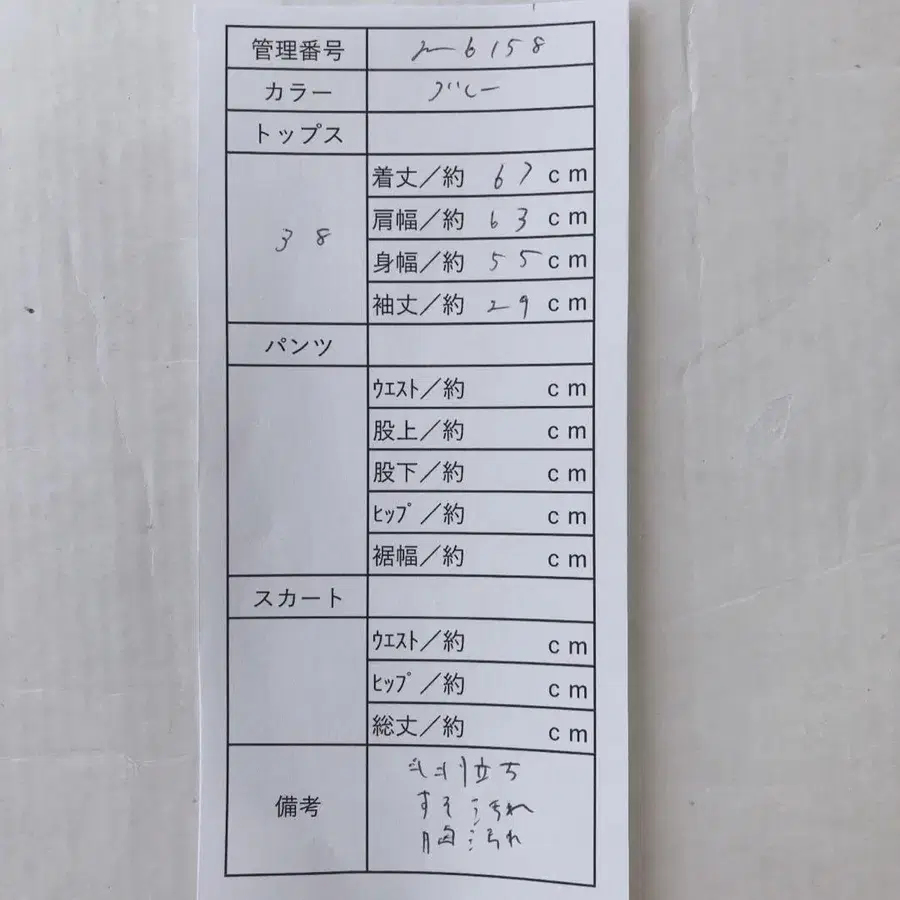 管理番号 m6158
カラー
トップス
38
着丈／約 67 cm
肩幅／約 63 cm
身幅／約 55 cm
袖丈／約 29 cm
パンツ
ｳｴｽﾄ／約 cm
股上／約 cm
股下／約 cm
ﾋｯﾌﾟ／約 cm
裾幅／約 cm
スカート
ｳｴｽﾄ／約 cm
ﾋｯﾌﾟ／約 cm
総丈／約 cm
備考
立ち
すそ汚れ
胸汚れ